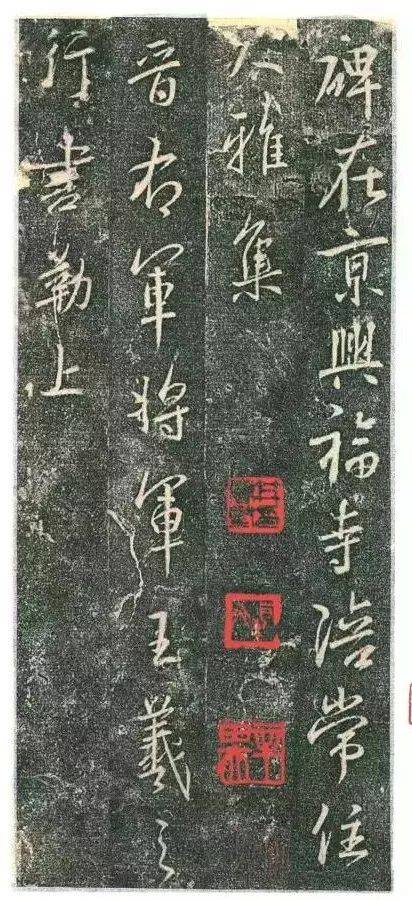 碑在京興福寺陪常住
大雅集
晋右軍將軍王羲之
行書勒上